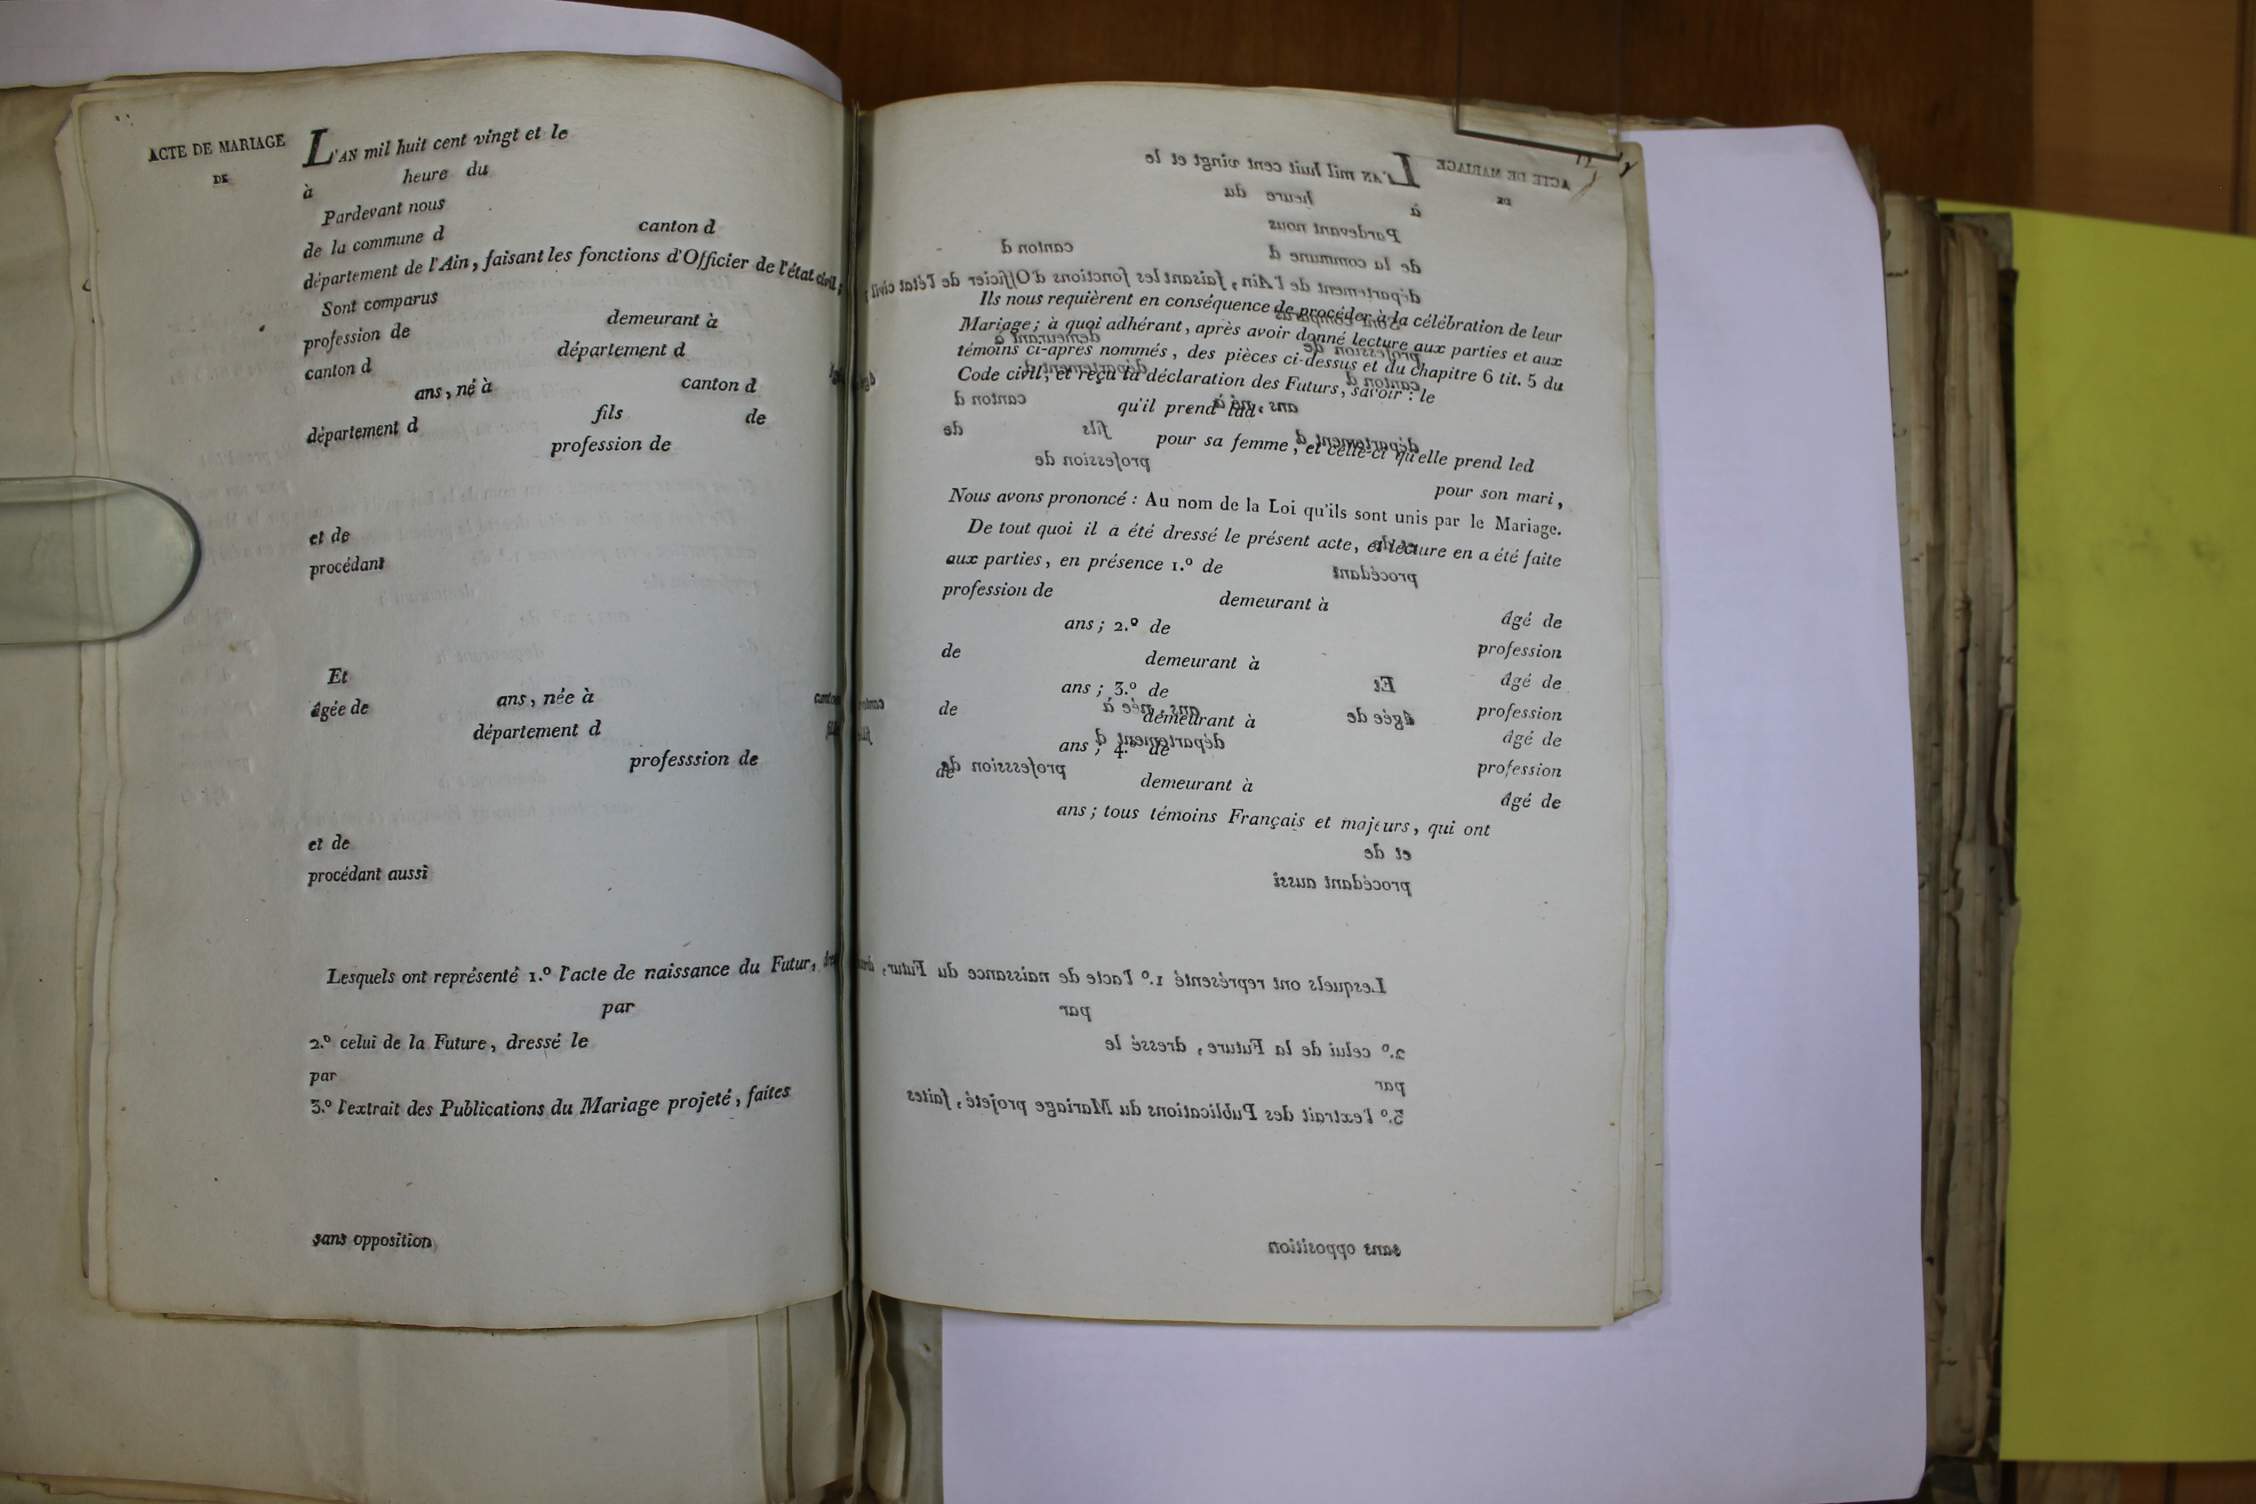 ACTE DE MARIAGE
DE
L'AN mil huit cent vingt et le
à heure du
Pardevant nous
de la commune d canton d
département de l'Ain, faisant les fonctions d'Officier de l'état civil;
Sont comparus
profession de demeurant à
canton d département d
ans, né à canton d
département d fils de
profession de
et de
procédant
Et
âgée de ans, née à canton
département d fille
professsion de
et de
procédant aussi
Lesquels ont représenté 1.º l'acte de naissance du Futur,
par
2.º celui de la Future, dressé le
par
3.º l'extrait des Publications du Mariage projeté, faites
sans opposition
Ils nous requièrent en conséquence de procéder à la célébration de leur
Mariage; à quoi adhérant, après avoir donné lecture aux parties et aux
témoins ci-après nommés, des pièces ci-dessus et du chapitre 6 tit. 5 du
Code civil, et reçu la déclaration des Futurs, savoir : le
qu'il prend lad
pour sa femme, et celle-ci qu'elle prend led
pour son mari,
Nous avons prononcé : Au nom de la Loi qu'ils sont unis par le Mariage.
De tout quoi il a été dressé le présent acte, et lecture en a été faite
aux parties, en présence 1.º de
profession de demeurant à âgé de
ans; 2.º de profession
de demeurant à âgé de
ans; 3.º de profession
de demeurant à âgé de
ans; 4.º de profession
de demeurant à âgé de
ans; tous témoins Français et majeurs, qui ont